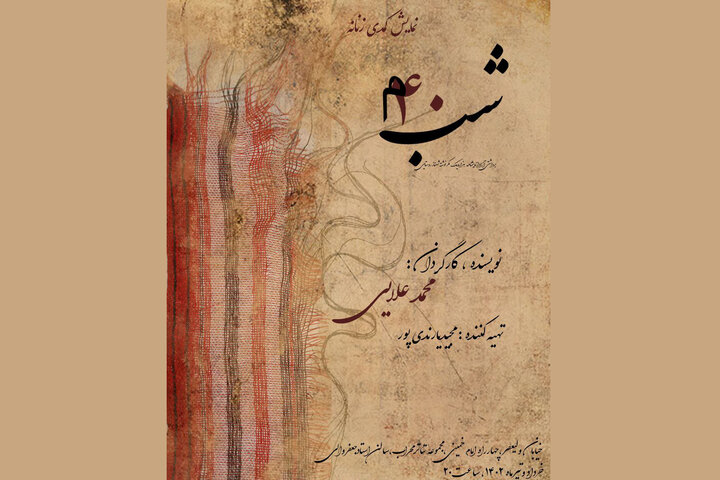 نمایش کمدی زنانه
شب ۴۰م
نویسنده ، کارگردان :
محمد علایی
تهیه کننده : مجید یارندی پور
خیابان ولیعصر، چهارراه امام خمینی، مجموعه تئاتر محراب، سالن استاد جعفر والی
خرداد و تیر ماه ۱۴۰۲، ساعت ۲۰